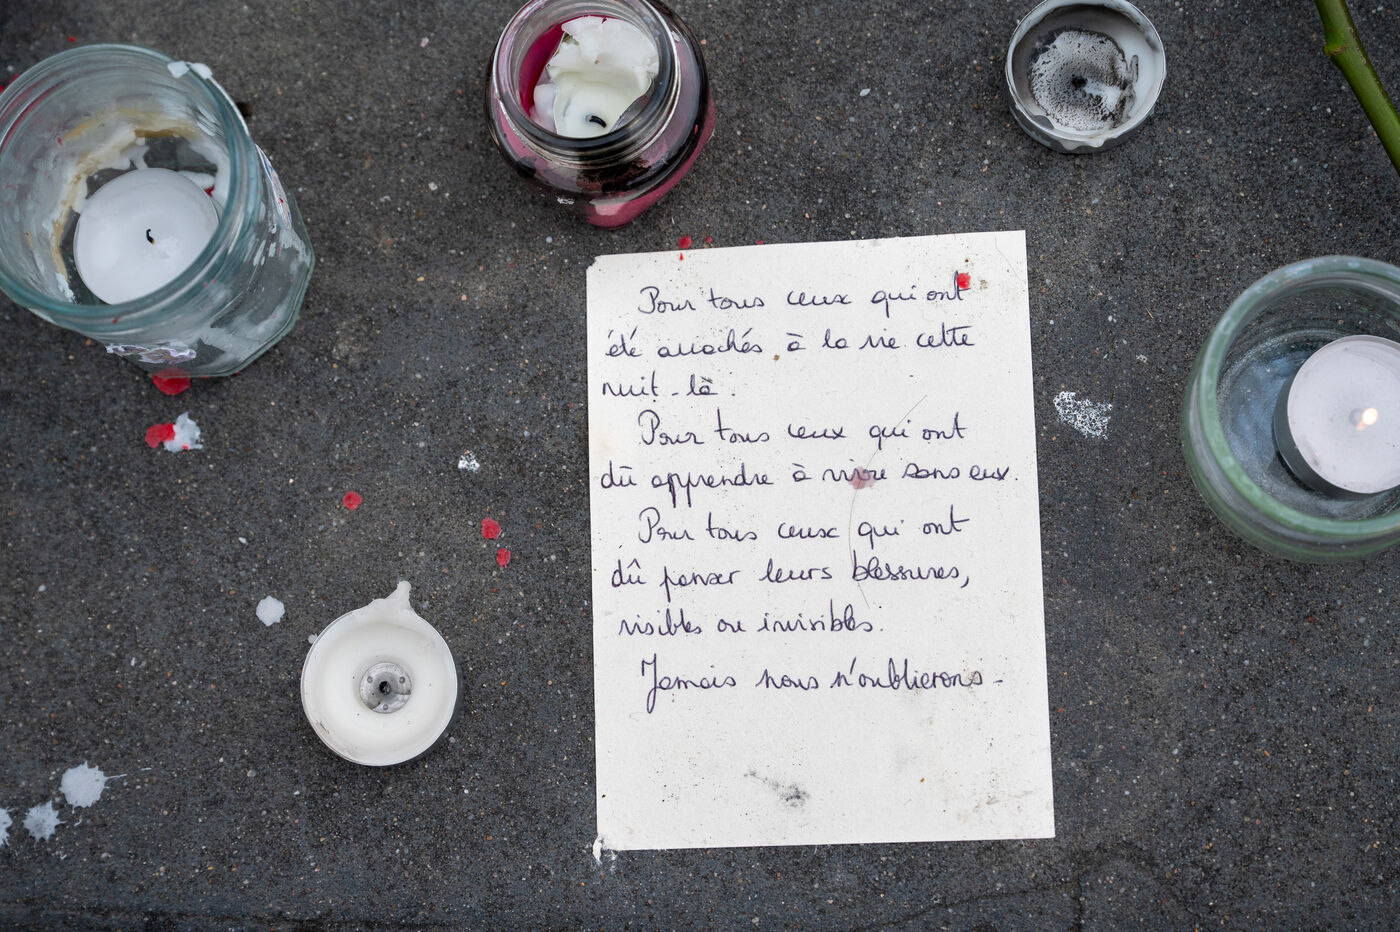 Pour tous ceux qui ont
été arrachés à la vie cette
nuit-là.
Pour tous ceux qui ont
dû apprendre à vivre sans eux.
Pour tous ceux qui ont
dû panser leurs blessures,
visibles ou invisibles.
Jamais nous n'oublierons-